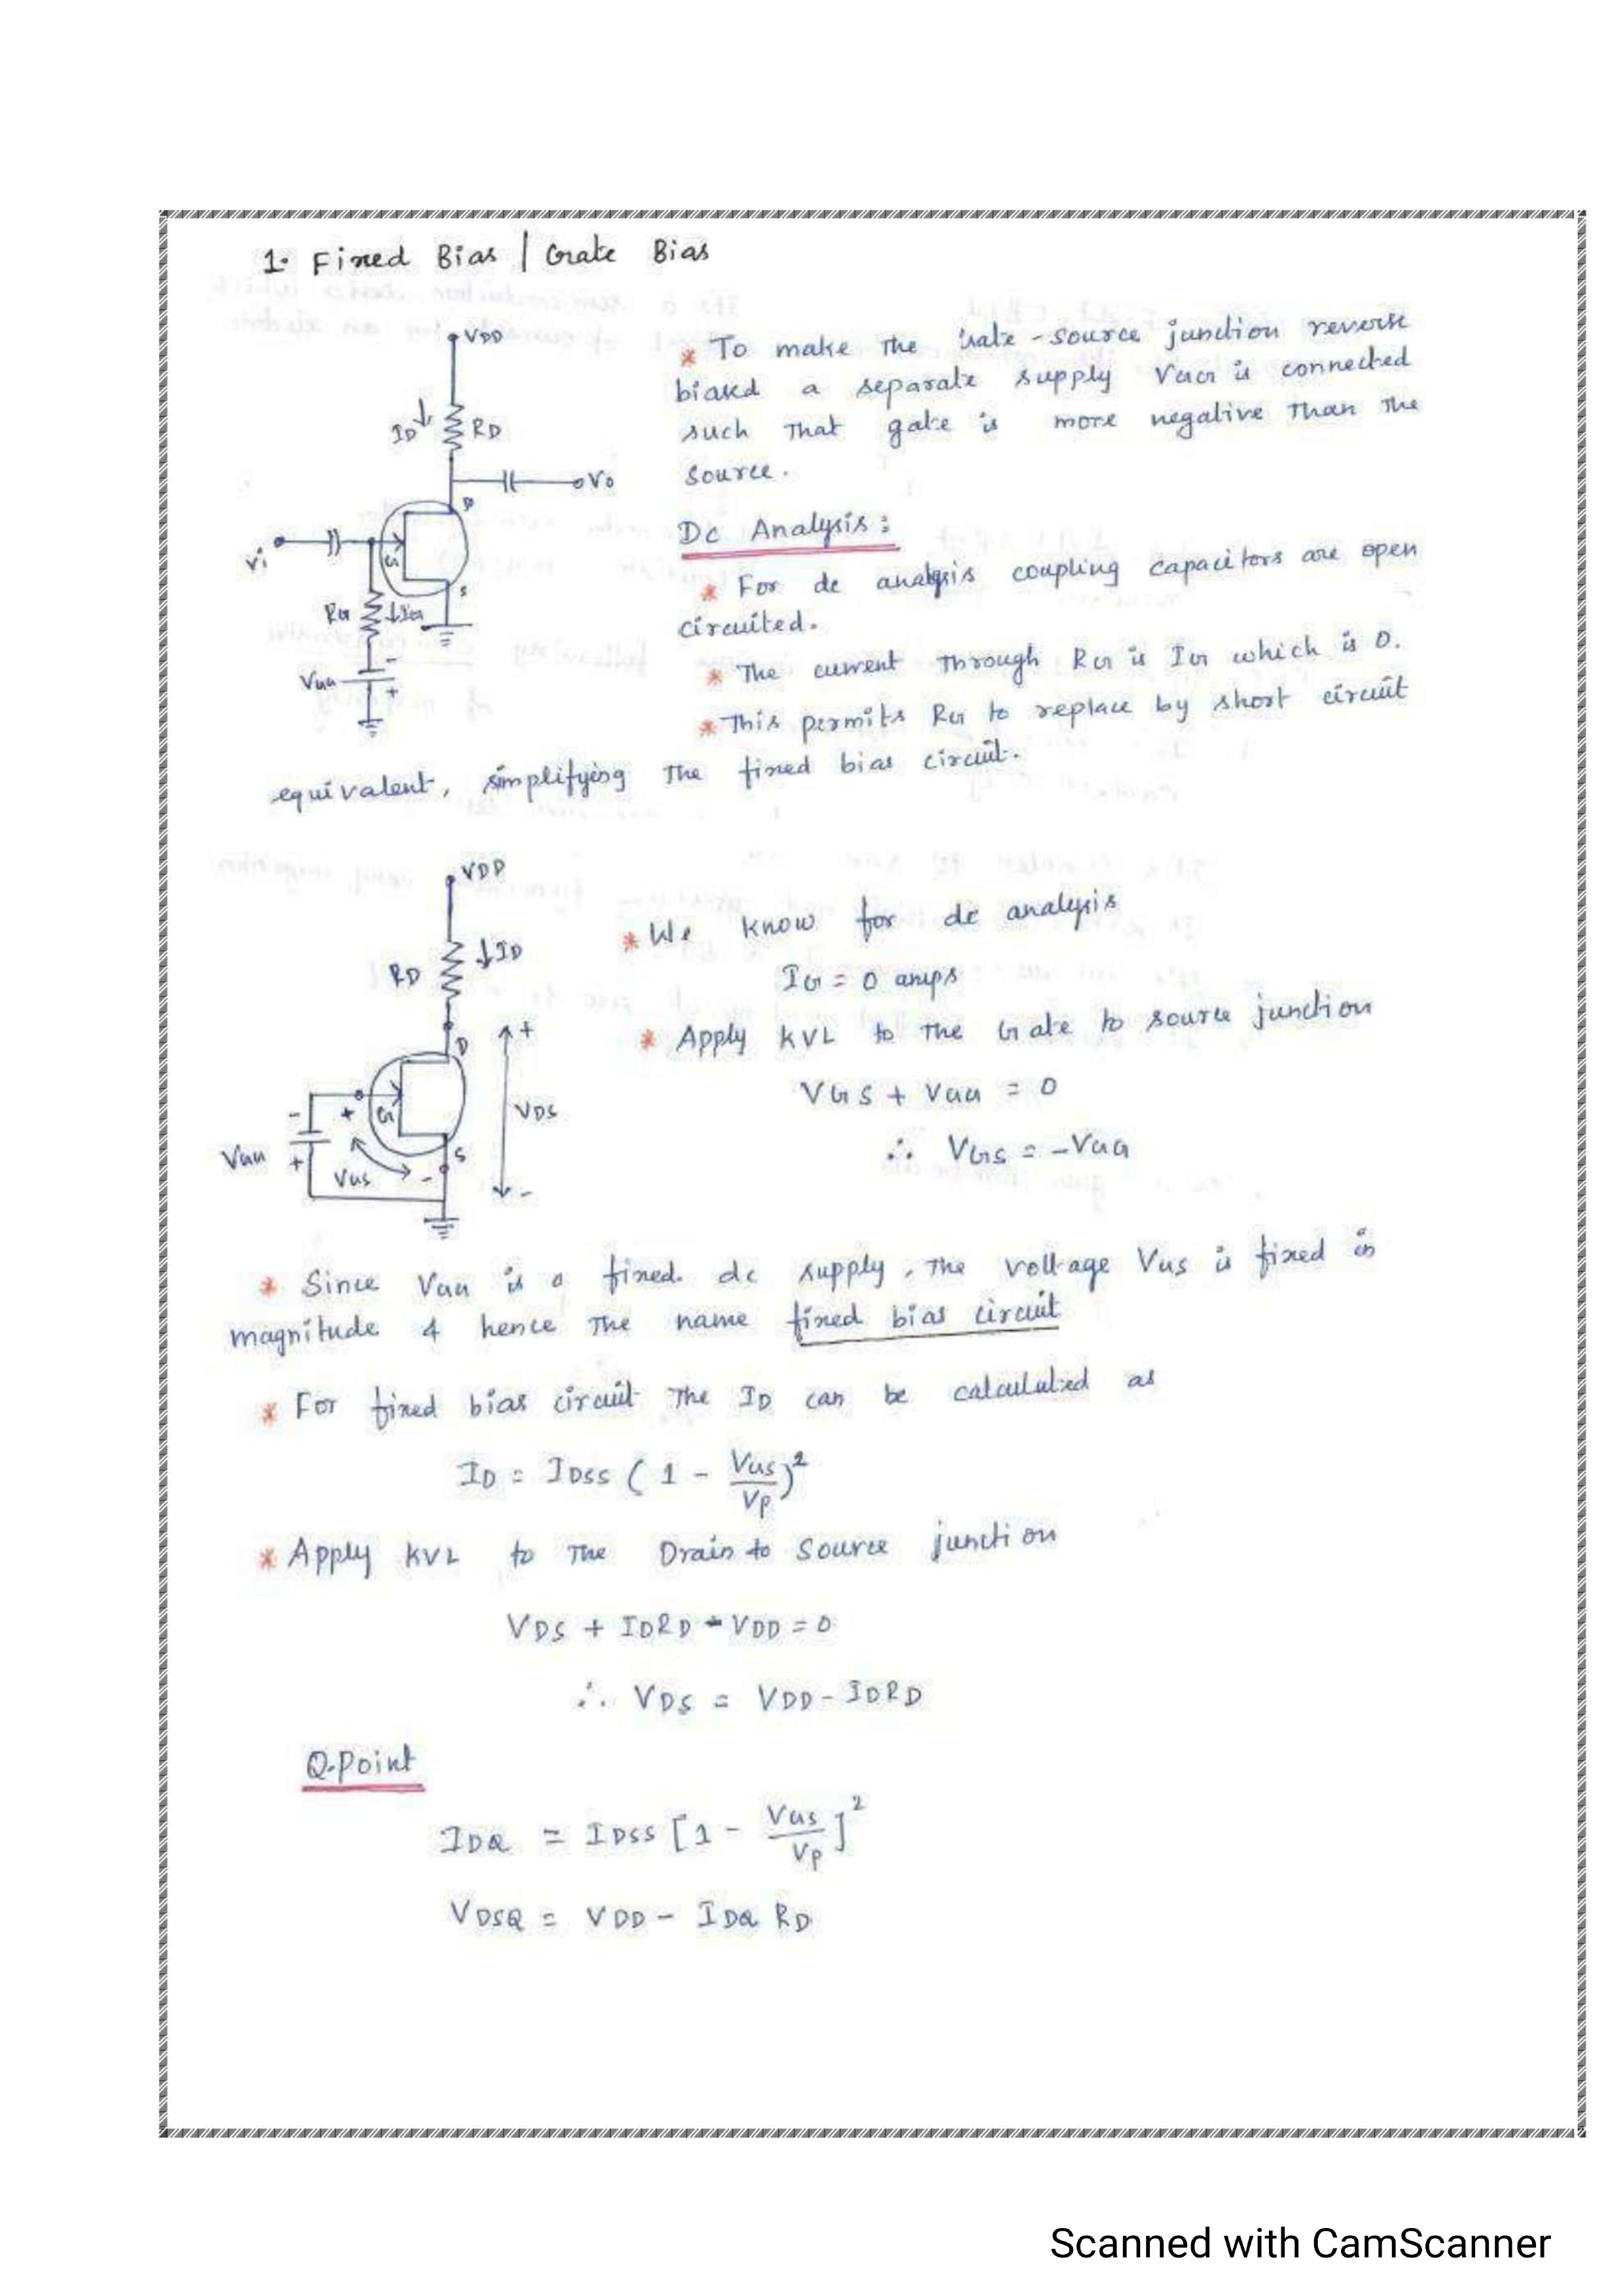 1. Fixed Bias | Gate Bias
VDD
ID
RD
Vo
D
Vi
G
S
RG
IG
-
VGG
+
* To make the Gate - source junction reverse
biased a separate supply VGG is connected
such that gate is more negative than the
source.
DC Analysis:
* For dc analysis coupling capacitors are open
circuited.
* The current through RG is IG which is 0.
* This permits RG to replace by short circuit
equivalent, simplifying the fixed bias circuit.
VDD
RD
ID
D
+
-
+
G
VDS
VGG
+
VGS
-
S
-
* We know for dc analysis
IG = 0 amps
* Apply KVL to the Gate to source junction
VGS + VGG = 0
∴ VGS = -VGG
* Since VGG is a fixed dc supply, the voltage VGS is fixed in
magnitude & hence the name fixed bias circuit
* For fixed bias circuit the ID can be calculated as
ID = IDSS ( 1 - VGS/VP )²
* Apply KVL to the Drain to Source junction
VDS + IDRD - VDD = 0
∴ VDS = VDD - IDRD
Q-Point
IDQ = IDSS [ 1 - VGS/VP ]²
VDSQ = VDD - IDQ RD
Scanned with CamScanner